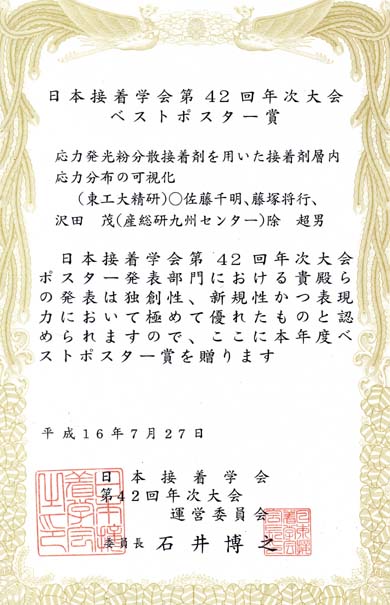 日本接着学会第42回年次大会
ベストポスター賞
応力発光粉分散接着剤を用いた接着剤層内
応力分布の可視化
(東工大精研)○佐藤千明、藤塚将行、
沢田 茂(産総研九州センター)除 超男
日本接着学会第42回年次大会
ポスター発表部門における貴殿ら
の発表は独創性、新規性かつ表現
力において極めて優れたものと認
められますので、ここに本年度ベ
ストポスター賞を贈ります
平成16年7月27日
日本接着学会
第42回年次大会
運営委員会
委員長 石井博之